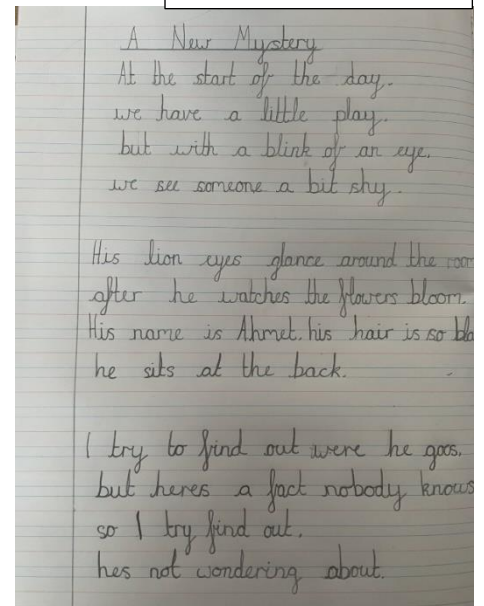 A New Mystery
At the start of the day.
we have a little play.
but with a blink of an eye.
we see someone a bit shy.
His lion eyes glance around the room
after he watches the flowers bloom.
His name is Ahmet. his hair is so bla
he sits at the back.
I try to find out were he goes.
but heres a fact nobody knows
so I try find out.
hes not wondering about.